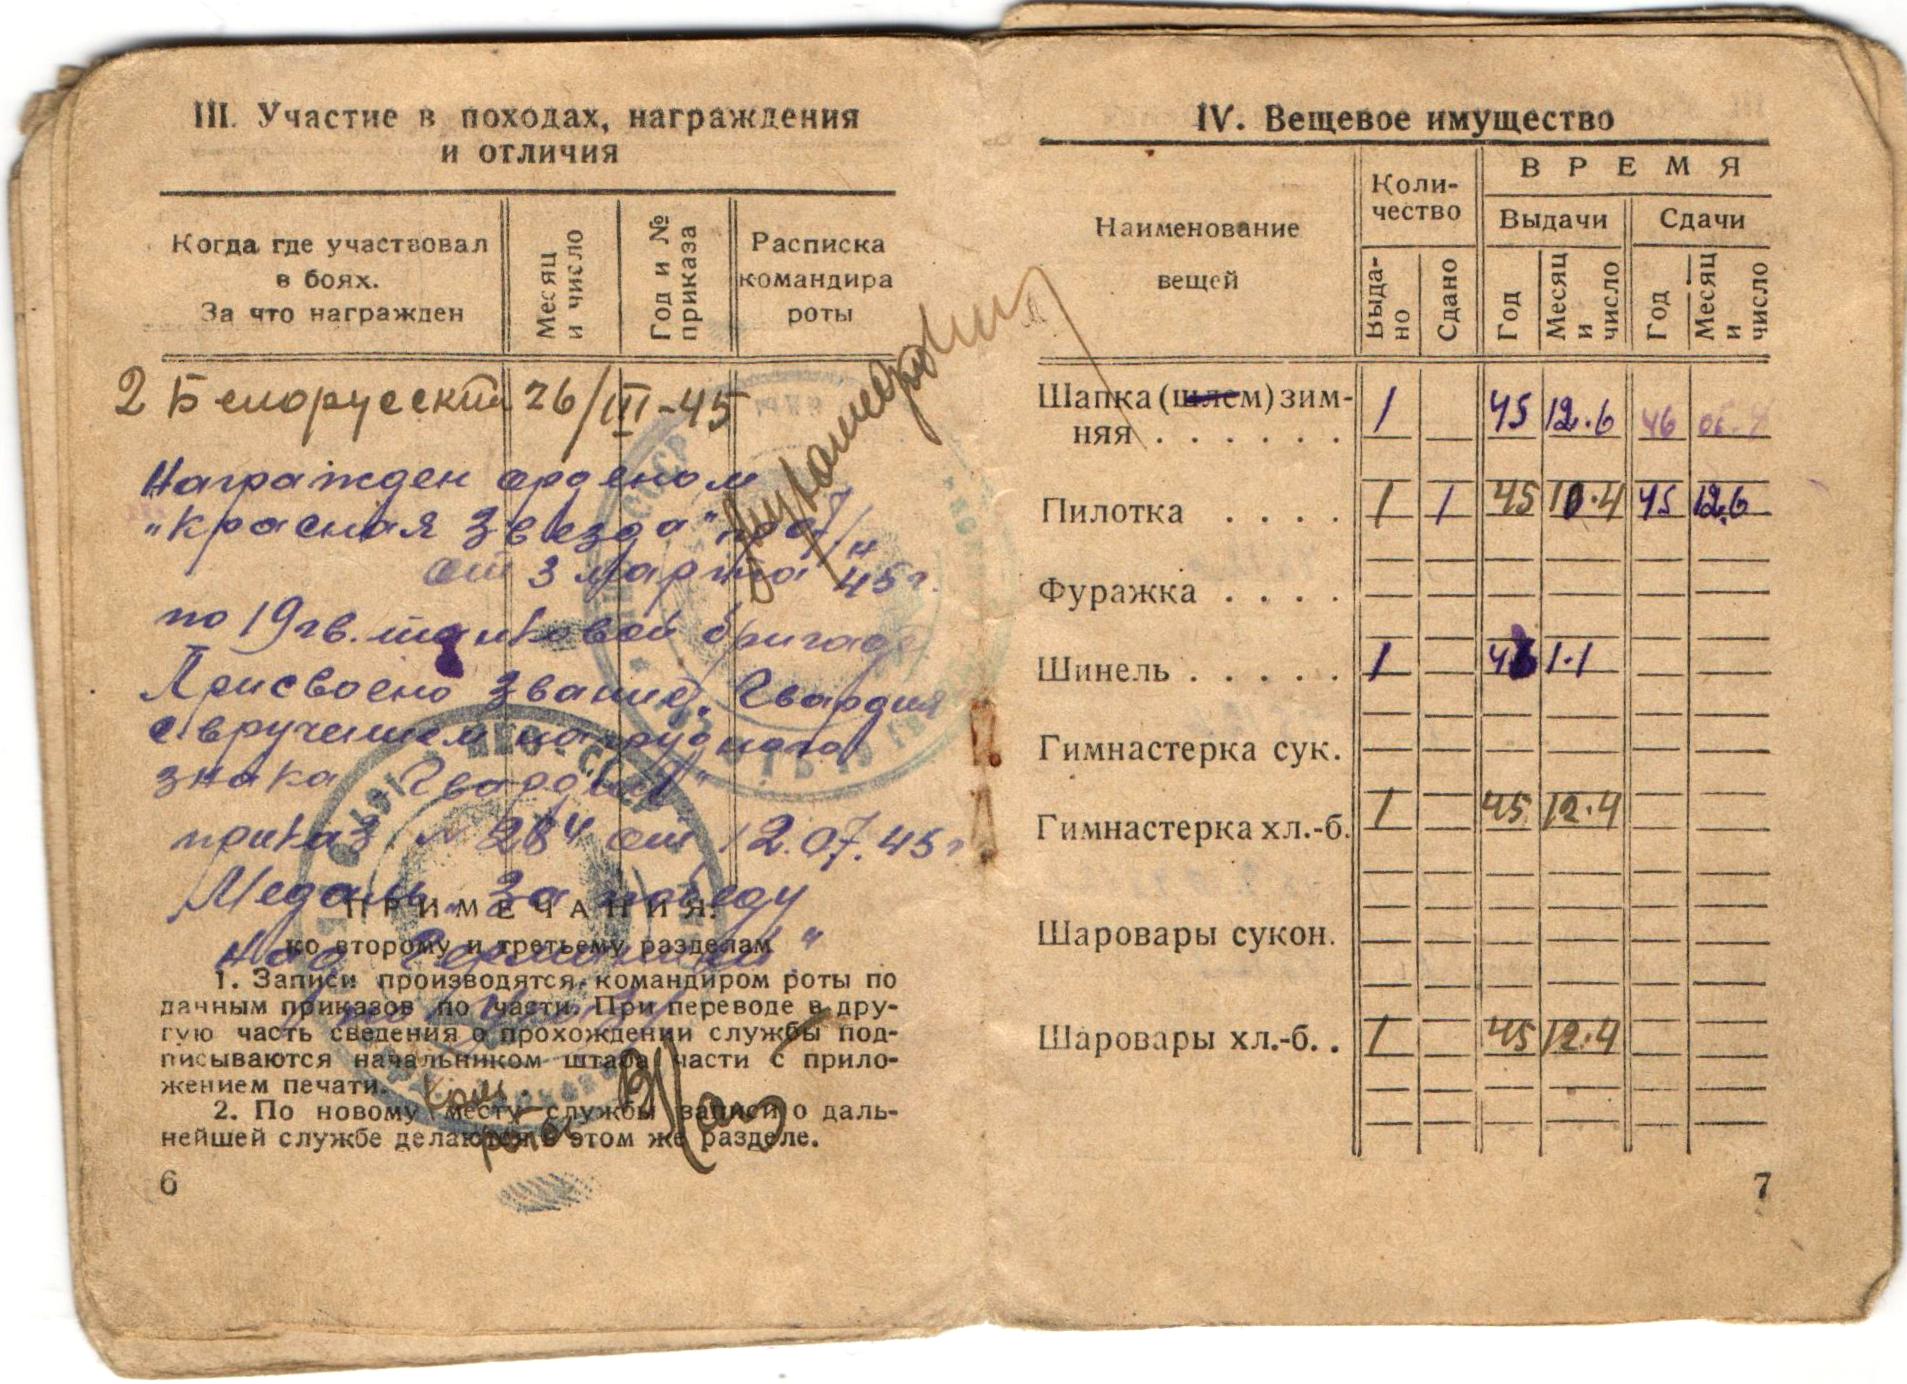 III. Участие в походах, награждения
и отличия
Когда где участвовал
в боях.
За что награжден
Месяц
и число
Год и №
приказа
Расписка
командира
роты
2 Белорусский 26/III-45
Награжден орденом
"Красная Звезда"
от 3 марта 45 г.
по 19 гв. танковой бригаде
Присвоено звание "Гвардия
с вручением нагрудного
знака "Гвардия"
приказ № 284 от 12.07.45 г
Медаль "За победу
над Германией"
ПРИМЕЧАНИЯ:
ко второму и третьему разделам
1. Записи производятся командиром роты по
данным приказов по части. При переводе в дру-
гую часть сведения о прохождении службы под-
писываются начальником штаба части с прило-
жением печати.
2. По новому месту службы записи о даль-
нейшей службе делаются в этом же разделе.
6
IV. Вещевое имущество
Наименование
вещей
Коли-
чество
ВРЕМЯ
Выдачи Сдачи
Выда-
но
Сдано
Год
Месяц
и
число
Год
Месяц
и
число
Шапка (шлем) зим-
няя . . . . . . 1 45 12.6 46
Пилотка . . . . 1 1 45 10.4 45 12.6
Фуражка . . . .
Шинель . . . . . 1 1.1
Гимнастерка сук.
Гимнастерка хл.-б. 1 45 12.4
Шаровары сукон.
Шаровары хл.-б. . 1 45 12.4
7